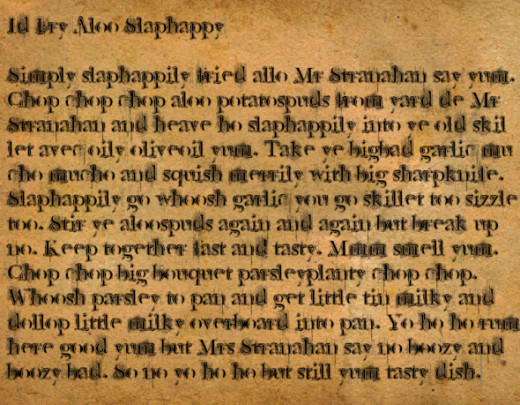 Id Fry Aloo Slaphappy
Simply slaphappily fried allo Mr Stranahan say yum.
Chop chop chop aloo potatospuds from yard de Mr
Stranahan and heave ho slaphappily into ye old skil
let avec oily oliveoil yum. Take ye bigbad garlic mu
cho mucho and squish merrily with big sharpknife.
Slaphappily go whoosh garlic you go skillet too sizzle
too. Stir ye aloospuds again and again but break up
no. Keep together fast and tasty. Mmm smell yum.
Chop chop big bouquet parsleyplanty chop chop.
Whoosh parsley to pan and get little tin milky and
dollop little milky overboard into pan. Yo ho ho rum
here good yum but Mrs Stranahan say no boozy and
boozy bad. So no yo ho ho but still yum tasty dish.